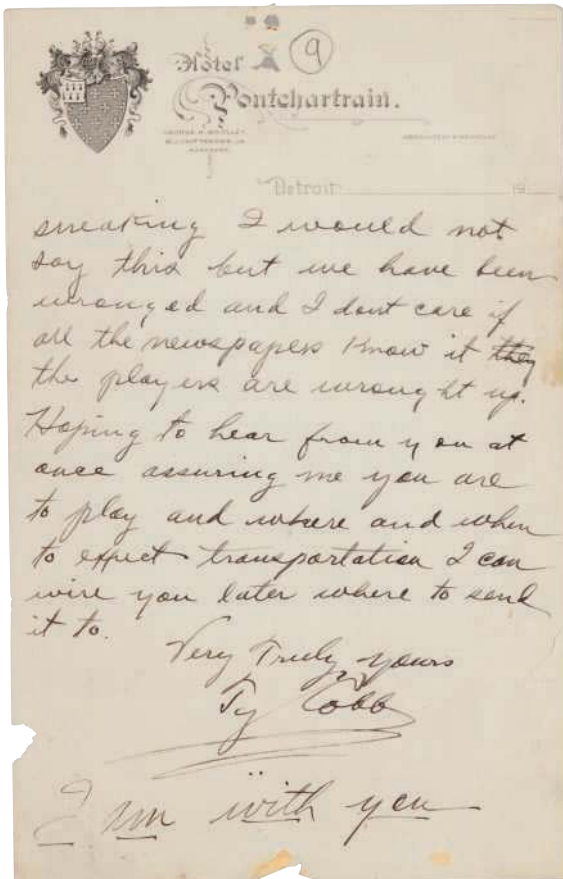 9
Hotel
Pontchartrain.
Detroit 19
sneaking I would not
say this but we have been
wronged and I dont care if
all the newspapers know it they
the players are wrought up.
Hoping to hear from you at
once assuring me you are
to play and where and when
to expect transportation I can
wire you later where to send
it to.
Very Truly yours
Ty Cobb
I am with you